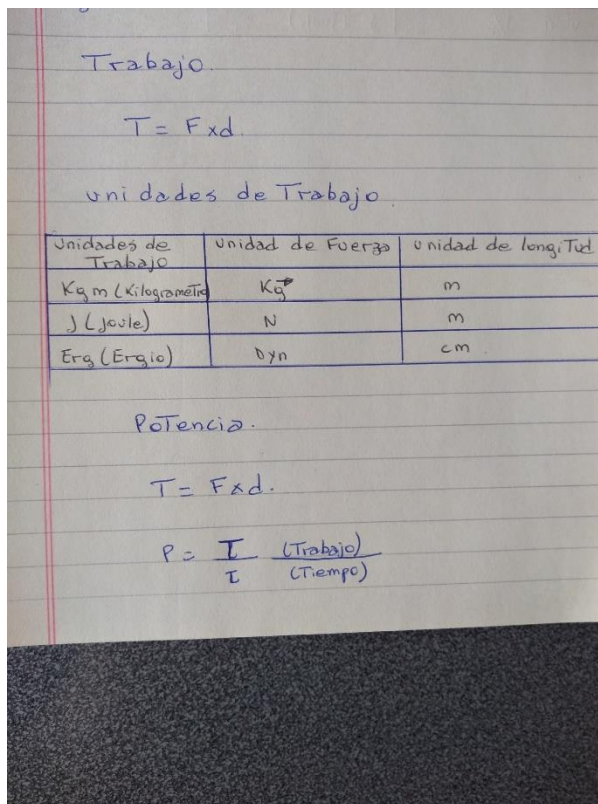 Trabajo.
T = F x d.
unidades de Trabajo.
Unidades de Trabajo | unidad de Fuerza | unidad de longiTud
Kgm (Kilogrametro | Kg | m
J (Joule) | N | m
Erg (Ergio) | Dyn | cm
PoTencia.
T = F x d.
P = T (Trabajo)
T (Tiempo)